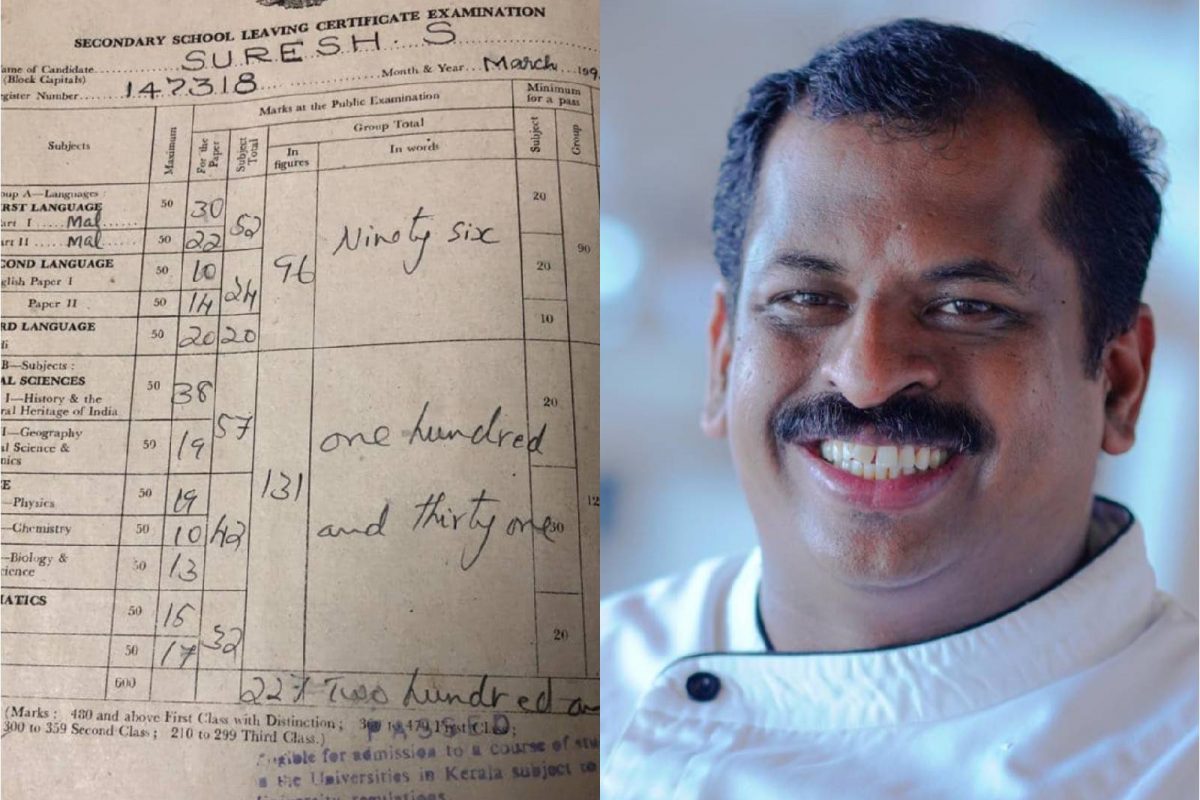 SECONDARY SCHOOL LEAVING CERTIFICATE EXAMINATION
ame of Candidate SURESH. S
(Block Capitals)
gister Number 147318 Month & Year March 199
Subjects
Maximum
Marks at the Public Examination
For the Paper
Subject Total
Group Total
In figures
In words
Minimum for a pass
Subject
Group
oup A—Languages :
RST LANGUAGE
art I Mal 50 30 52 20
art II Mal 50 22
96 Ninety six 90
COND LANGUAGE
glish Paper I 50 10 24 20
Paper II 50 14
RD LANGUAGE 50 20 20 10
B—Subjects :
AL SCIENCES
I—History & the 50 38 57 20
ral Heritage of India
I—Geography 50 19
al Science &
nics
131 one hundred
and thirty one 12
E
—Physics 50 19 42 30
—Chemistry 50 10
—Biology & 50 13
cience
ATICS 50 15 32 20
50 17
600 227 Two hundred an
(Marks : 480 and above First Class with Distinction ; 360 to 479 First Class ;
300 to 359 Second Class ; 210 to 299 Third Class.)
PASSED
gible for admission to a course of stu
the Universities in Kerala subject to
University regulations